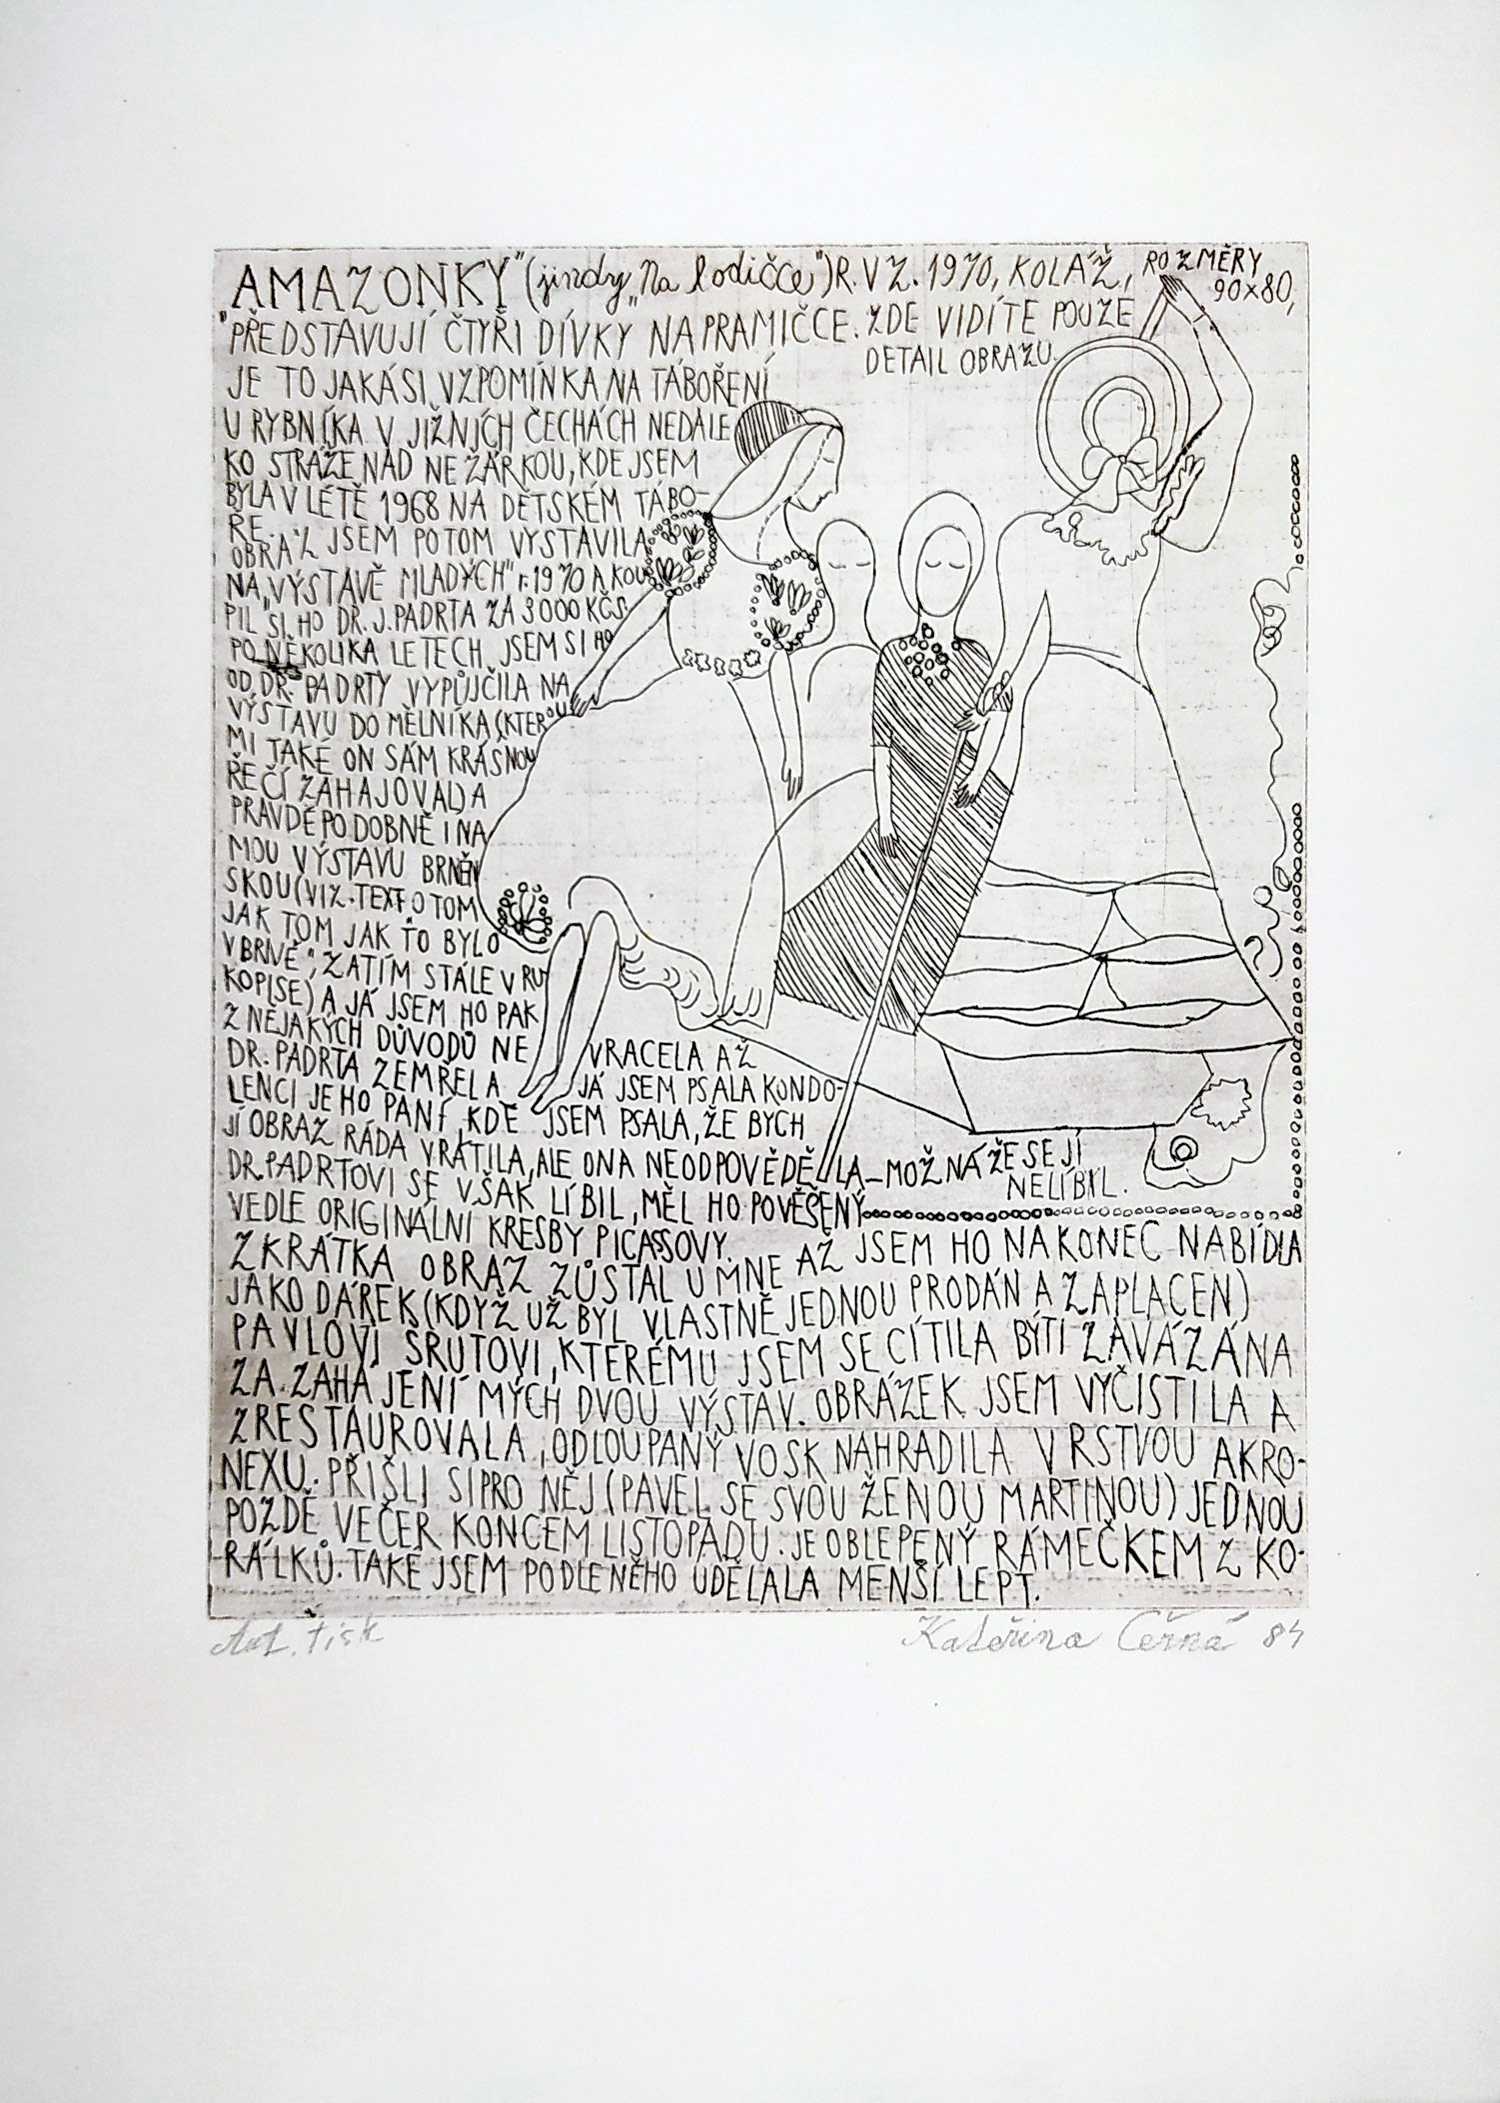 "AMAZONKY" (jindy „Na lodičce") R. VZ. 1970, KOLÁŽ, ROZMĚRY
90×80,
PŘEDSTAVUJÍ ČTYŘI DÍVKY NA PRAMIČCE. ZDE VIDÍTE POUZE
DETAIL OBRAZU.
JE TO JAKÁSI VZPOMÍNKA NA TÁBOŘENÍ
U RYBNÍKA V JIŽNÍCH ČECHÁCH NEDALE
KO STRÁŽE NAD NEŽÁRKOU, KDE JSEM
BYLA V LÉTĚ 1968 NA DĚTSKÉM TÁBO-
ŘE.
OBRAZ JSEM POTOM VYSTAVILA
NA „VÝSTAVĚ MLADÝCH" r. 1970 A KOU
PIL SI HO DR. J. PADRTA ZA 3000 KČS.
PO NĚKOLIKA LETECH JSEM SI HO
OD DR. PADRTY VYPŮJČILA NA
VÝSTAVU DO MĚLNÍKA (KTEROU
MI TAKÉ ON SÁM KRÁSNOU
ŘEČÍ ZAHAJOVAL) A
PRAVDĚPODOBNĚ I NA
MOU VÝSTAVU BRNĚN
SKOU (VIZ. TEXT „O TOM
JAK TOM JAK TO BYLO
V BRNĚ", ZATÍM STÁLE V RU
KOPISE) A JÁ JSEM HO PAK
Z NĚJAKÝCH DŮVODŮ NE VRACELA AŽ
DR. PADRTA ZEMŘEL A JÁ JSEM PSALA KONDO-
LENCI JEHO PANÍ, KDE JSEM PSALA, ŽE BYCH
JÍ OBRAZ RÁDA VRÁTILA, ALE ONA NEODPOVĚDĚLA – MOŽNÁ ŽE SE JÍ
NELÍBIL.
DR. PADRTOVI SE VŠAK LÍBIL, MĚL HO POVĚŠENÝ
VEDLE ORIGINÁLNÍ KRESBY PICASSOVY.
ZKRÁTKA OBRAZ ZŮSTAL U MNE AŽ JSEM HO NAKONEC NABÍDLA
JAKO DÁREK (KDYŽ UŽ BYL VLASTNĚ JEDNOU PRODÁN A ZAPLACEN)
PAVLOVI ŠRUTOVI, KTERÉMU JSEM SE CÍTILA BÝTI ZAVÁZÁNA
ZA ZAHÁJENÍ MÝCH DVOU VÝSTAV. OBRÁZEK JSEM VYČISTILA A
ZRESTAUROVALA, ODLOUPANÝ VOSK NAHRADILA VRSTVOU AKRO-
NEXU. PŘIŠLI SI PRO NĚJ (PAVEL SE SVOU ŽENOU MARTINOU) JEDNOU
POZDĚ VEČER KONCEM LISTOPADU. JE OBLEPENÝ RÁMEČKEM Z KO-
RÁLKŮ. TAKÉ JSEM PODLE NĚHO UDĚLALA MENŠÍ LEPT.
Aut. tisk Kateřina Černá 84